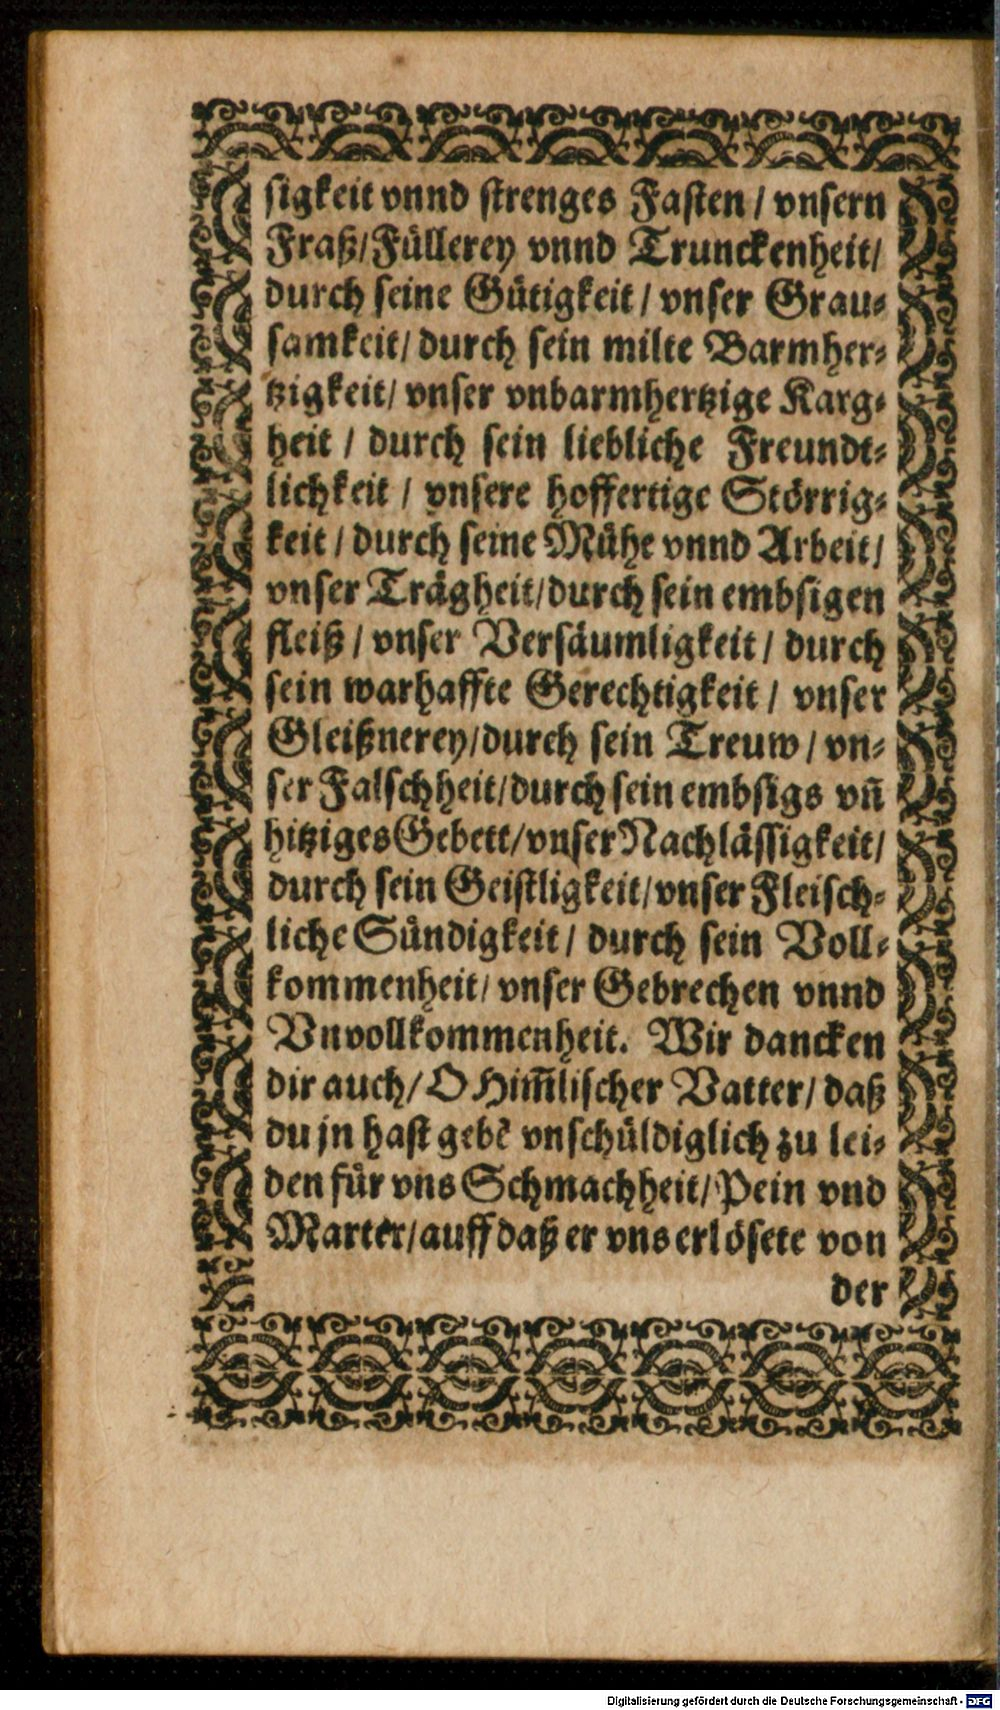 sigkeit vnnd strenges Fasten / vnsern
Fraß / Füllerey vnnd Trunckenheit /
durch seine Gütigkeit / vnser Grau-
samkeit / durch sein milte Barmher-
tzigkeit / vnser vnbarmhertzige Karg-
heit / durch sein liebliche Freundt-
lichkeit / vnsere hoffertige Störrig-
keit / durch seine Mühe vnnd Arbeit /
vnser Trägheit / durch sein embsigen
fleiß / vnser Versäumligkeit / durch
sein warhaffte Gerechtigkeit / vnser
Gleißnerey / durch sein Treuw / vn-
ser Falschheit / durch sein embsigs vñ
hitziges Gebett / vnser Nachlässigkeit /
durch sein Geistligkeit / vnser Fleisch-
liche Sündigkeit / durch sein Voll-
kommenheit / vnser Gebrechen vnnd
Vnvollkommenheit. Wir dancken
dir auch / O Him̃lischer Vatter / daß
du jn hast gebẽ vnschüldiglich zu lei-
den für vns Schmachheit / Pein vnd
Marter / auff daß er vns erlösete von
der
Digitalisierung gefördert durch die Deutsche Forschungsgemeinschaft - DFG